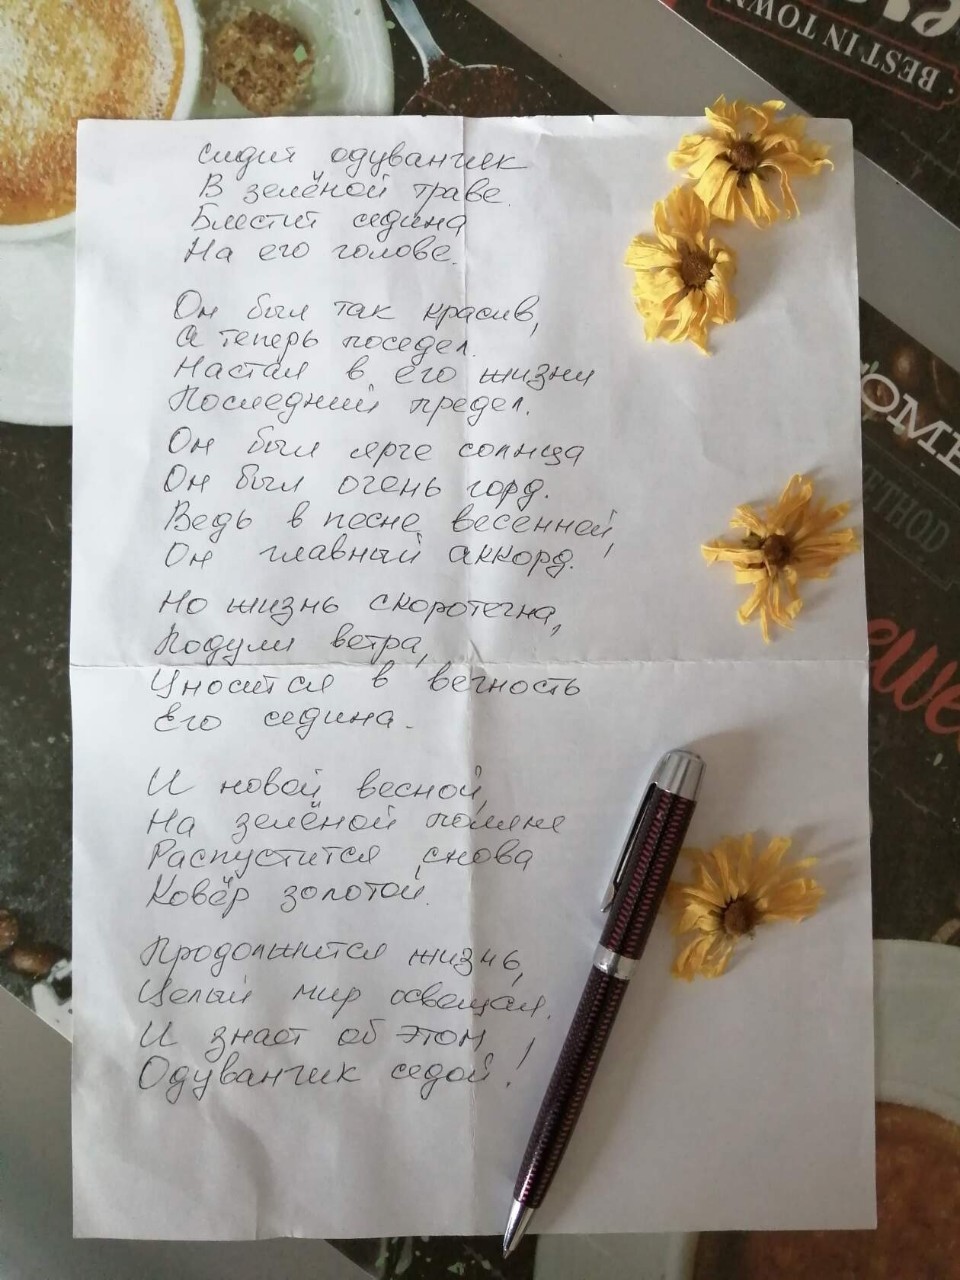 BEST IN TOWN
Сидит одуванчик
В зелёной траве.
Блестит седина
На его голове.
Он был так красив,
А теперь поседел.
Настал в его жизни
Последний предел.
Он был ярче солнца
Он был очень горд.
Ведь в песне весенней,
Он главный аккорд!
Но жизнь скоротечна,
Подули ветра,
Уносится в вечность
Его седина.
И новой весной,
На зелёной поляне
Распустится снова
Ковёр золотой.
Продолжится жизнь,
Целый мир освещая.
И знает об этом
Одуванчик седой!